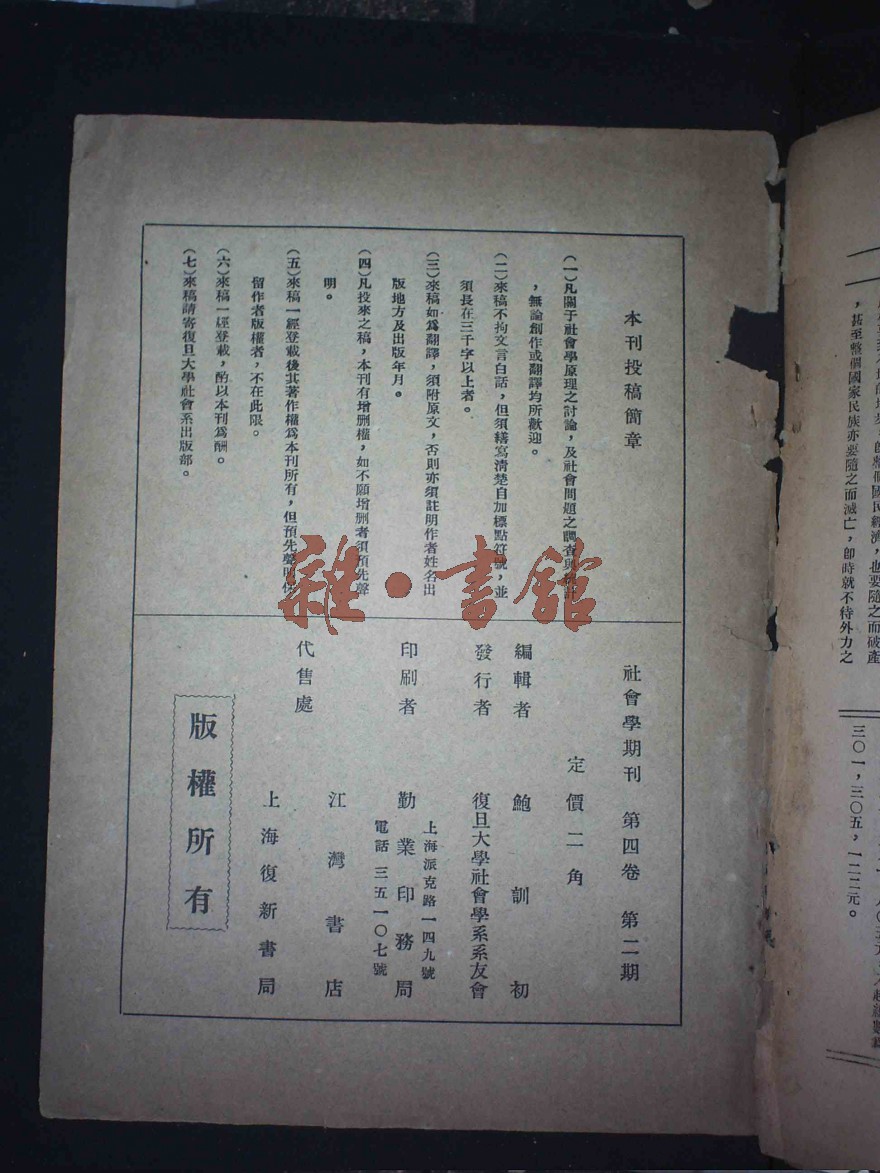 本刊投稿簡章
(一)凡關于社會學原理之討論，及社會問題之調查與統計
，無論創作或翻譯均所歡迎。
(二)來稿不拘文言白話，但須繕寫清楚自加標點符號，並
須長在三千字以上者。
(三)來稿如爲翻譯，須附原文，否則亦須註明作者姓名出
版地方及出版年月。
(四)凡投來之稿，本刊有增删權，如不願增删者須預先聲
明。
(五)來稿一經登載後其著作權爲本刊所有，但預先聲明保
留作者版權者，不在此限。
(六)來稿一經登載，酌以本刊爲酬。
(七)來稿請寄復旦大學社會系出版部。
社會學期刊 第四卷 第二期
定價二角
編輯者 鮑訓初
發行者 復旦大學社會學系系友會
印刷者 勤業印務局
上海派克路一四九號
電話 三五一〇七號
代售處 江灣書店
上海復新書局
版權所有
雜·書館
，甚至整個國家民族亦要隨之而滅亡，卽時就不待外力之
三〇一，三〇五，一二二元。